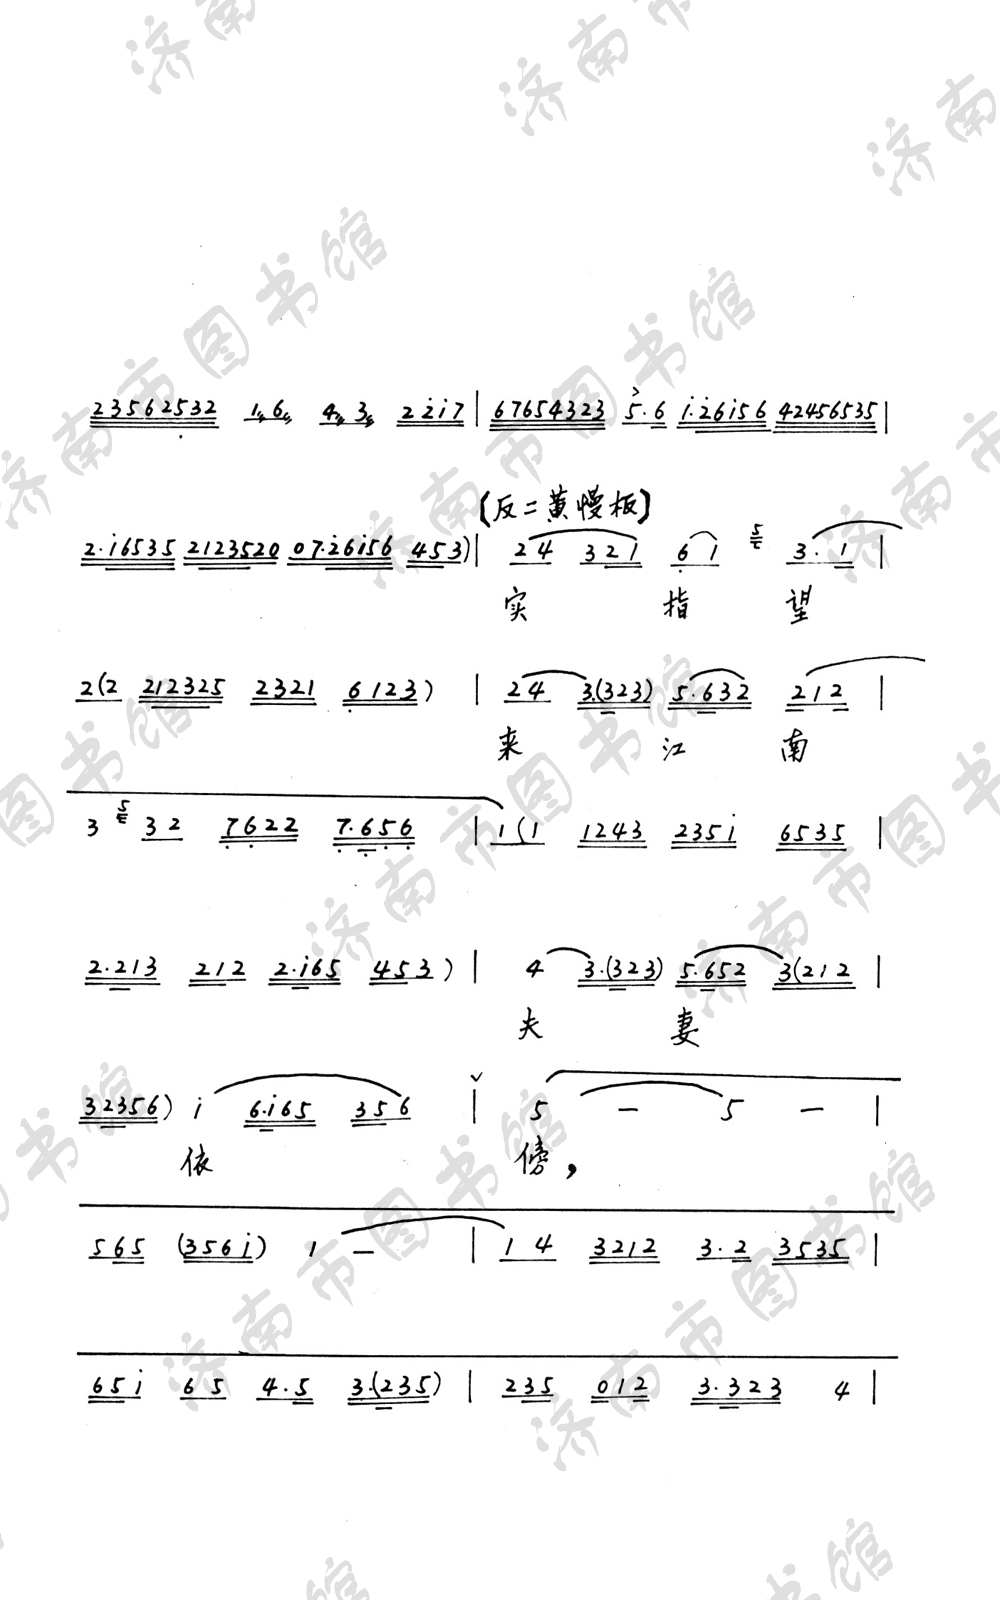 23562532 1 6 4 3 2 2 i 7 | 67654323 5·6 i·26i56 42456535 |
(反二黄慢板)
2·i6535 2123520 07·26i56 453) | 24 321 61 5 3·1 |
实 指 望
2(2 212325 2321 6123) | 24 3·(323) 5·632 212 |
来 江 南
3 5 32 7622 7·656 | 1(1 1243 235i 6535 |
2·213 212 2·i65 453) | 4 3·(323) 5·652 3(212 |
夫 妻
32356) i 6·i65 356 | 5 — 5 — |
依 傍，
565 (356i) 1 — | 14 3212 3·2 3535 |
65i 65 4·5 3·(235) | 235 012 3·323 4 |
济南市图书馆